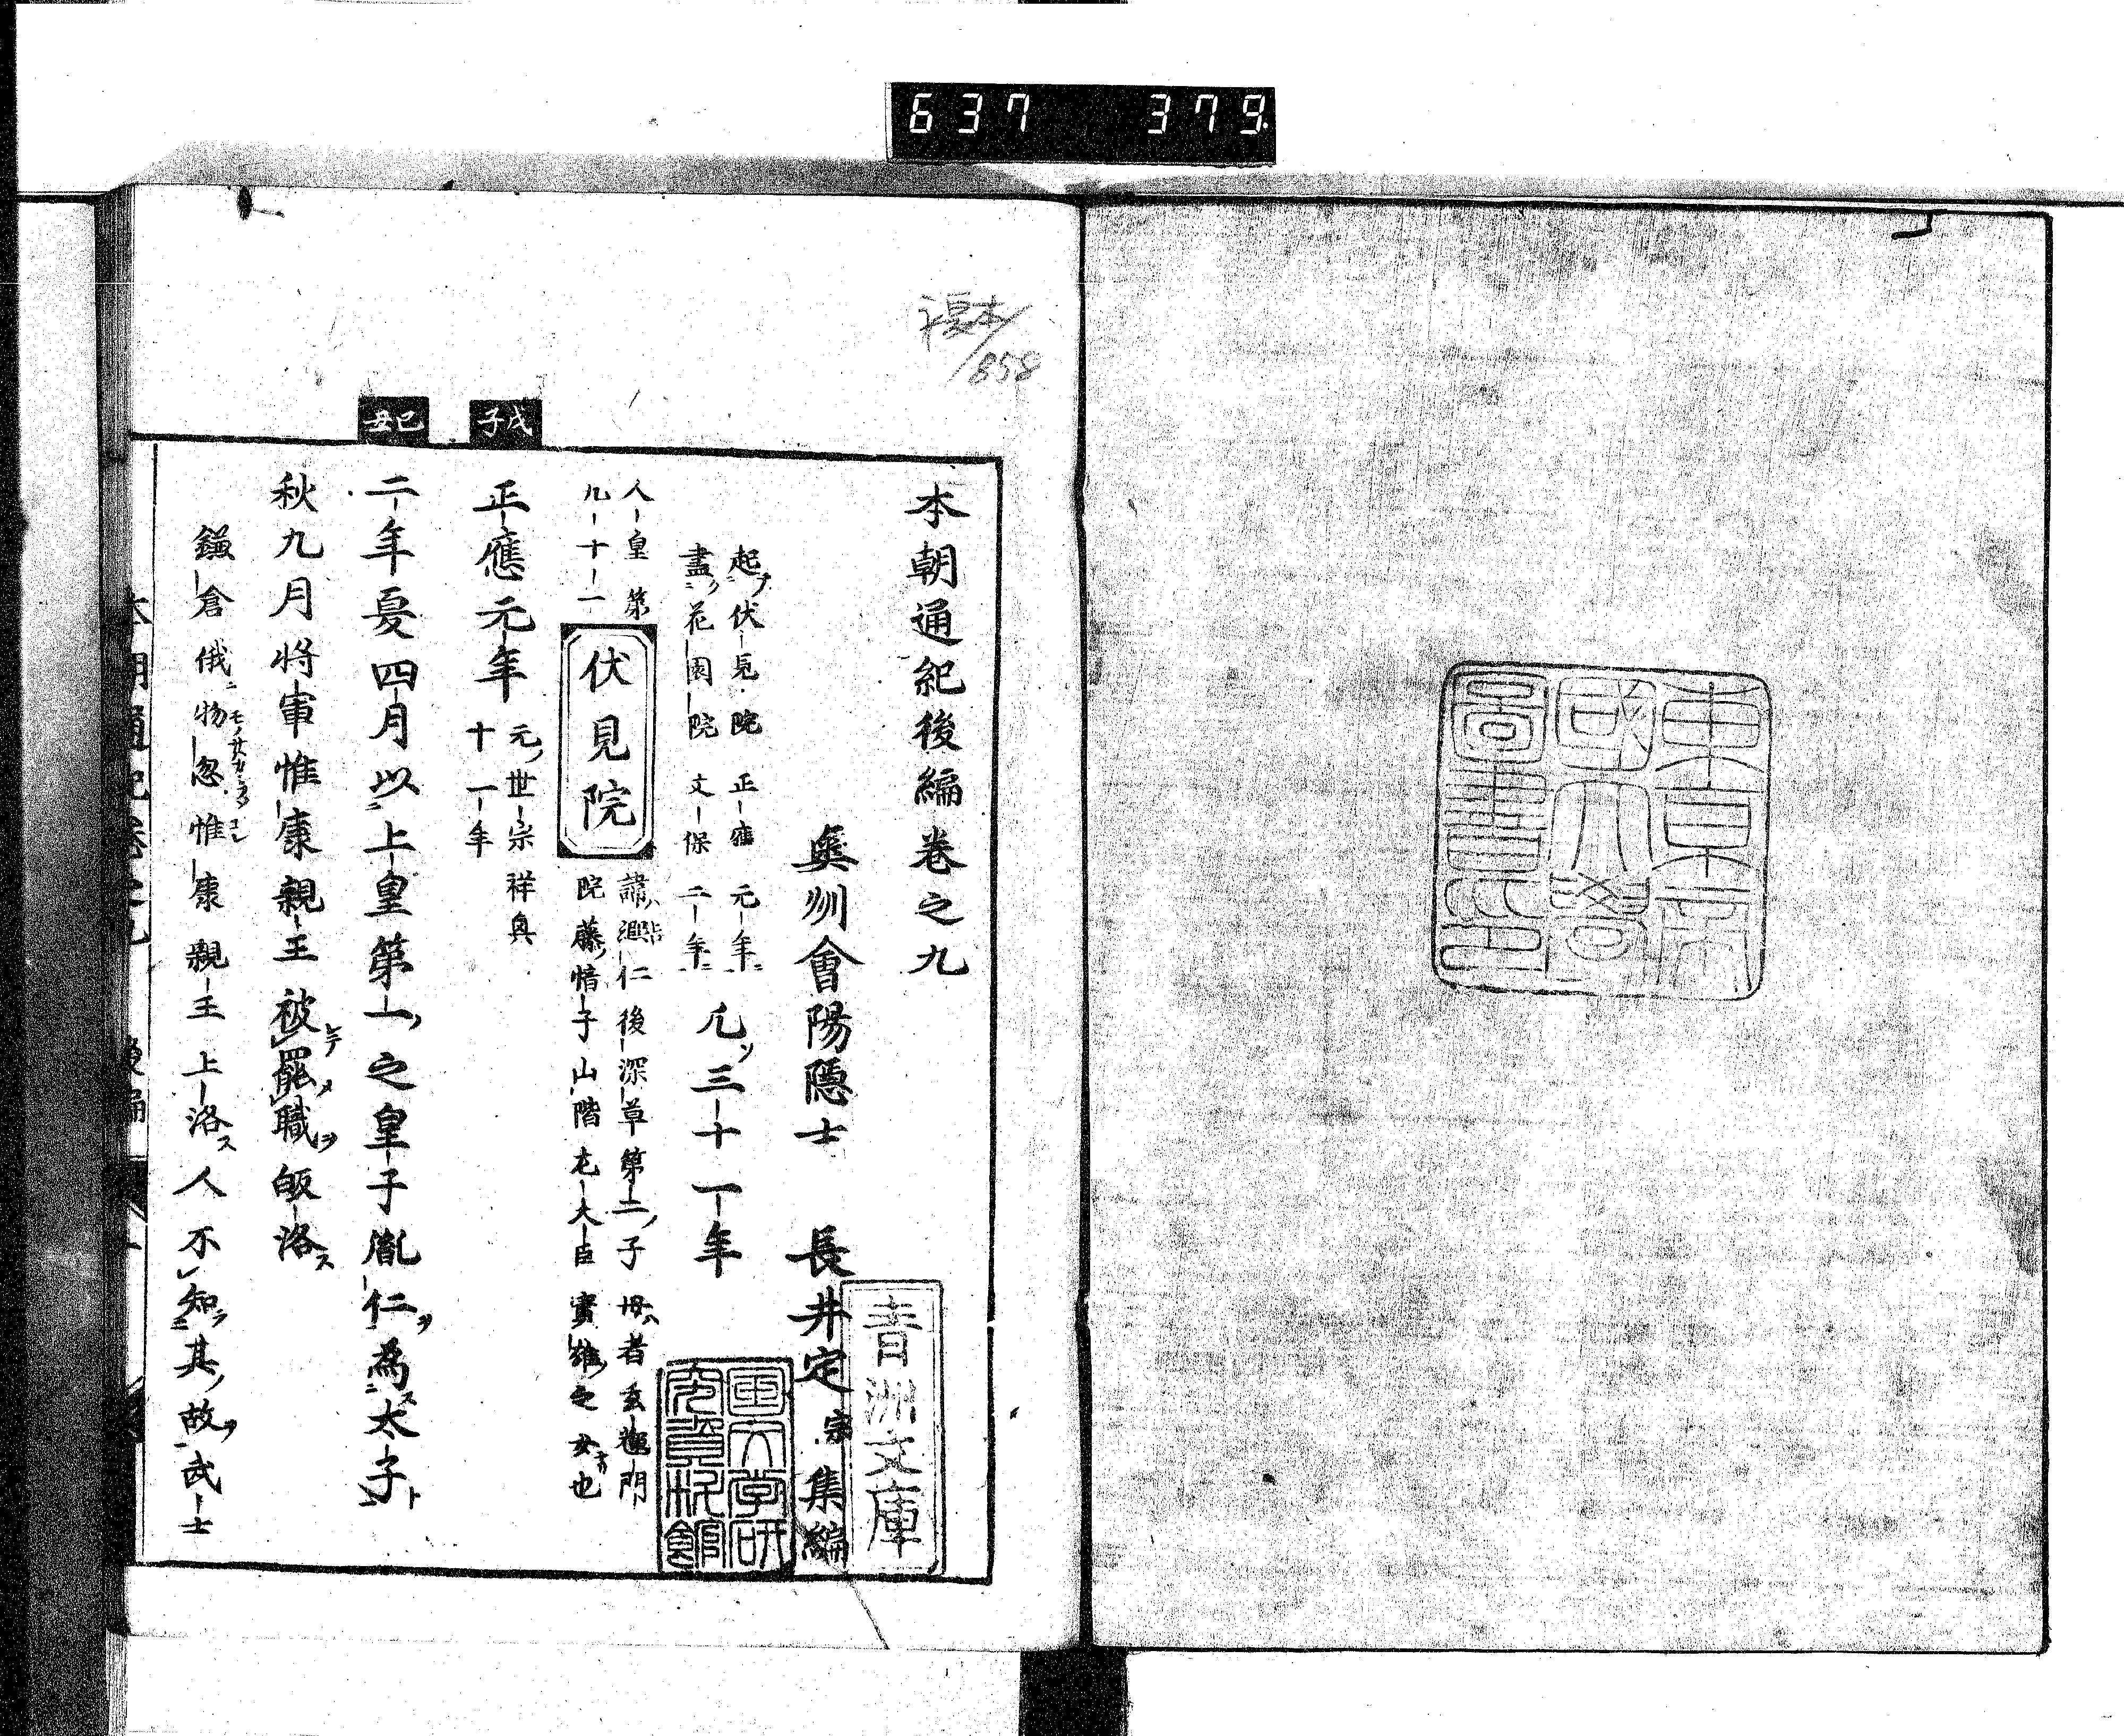 637 379
東京帝
國大學
圖書印
複本
858
本朝通紀後編卷之九
奥州會陽隱士 長井定宗集編
青洲文庫
起伏見院正應元年
盡花園院文保二年
凡三十一年
国文学研
究資料館
人皇第
九十一
伏見院
諱凞仁後深草第二子母者玄輝門
院藤愔子山階左大臣實雄之女也
戊子
正應元年
元世宗祥興
十一年
己丑
二年夏四月以上皇第一之皇子胤仁為太子
秋九月將軍惟康親王被罷職皈洛
鎌倉俄物忽惟康親王上洛人不知其故武士
本朝通紀卷之九 後編